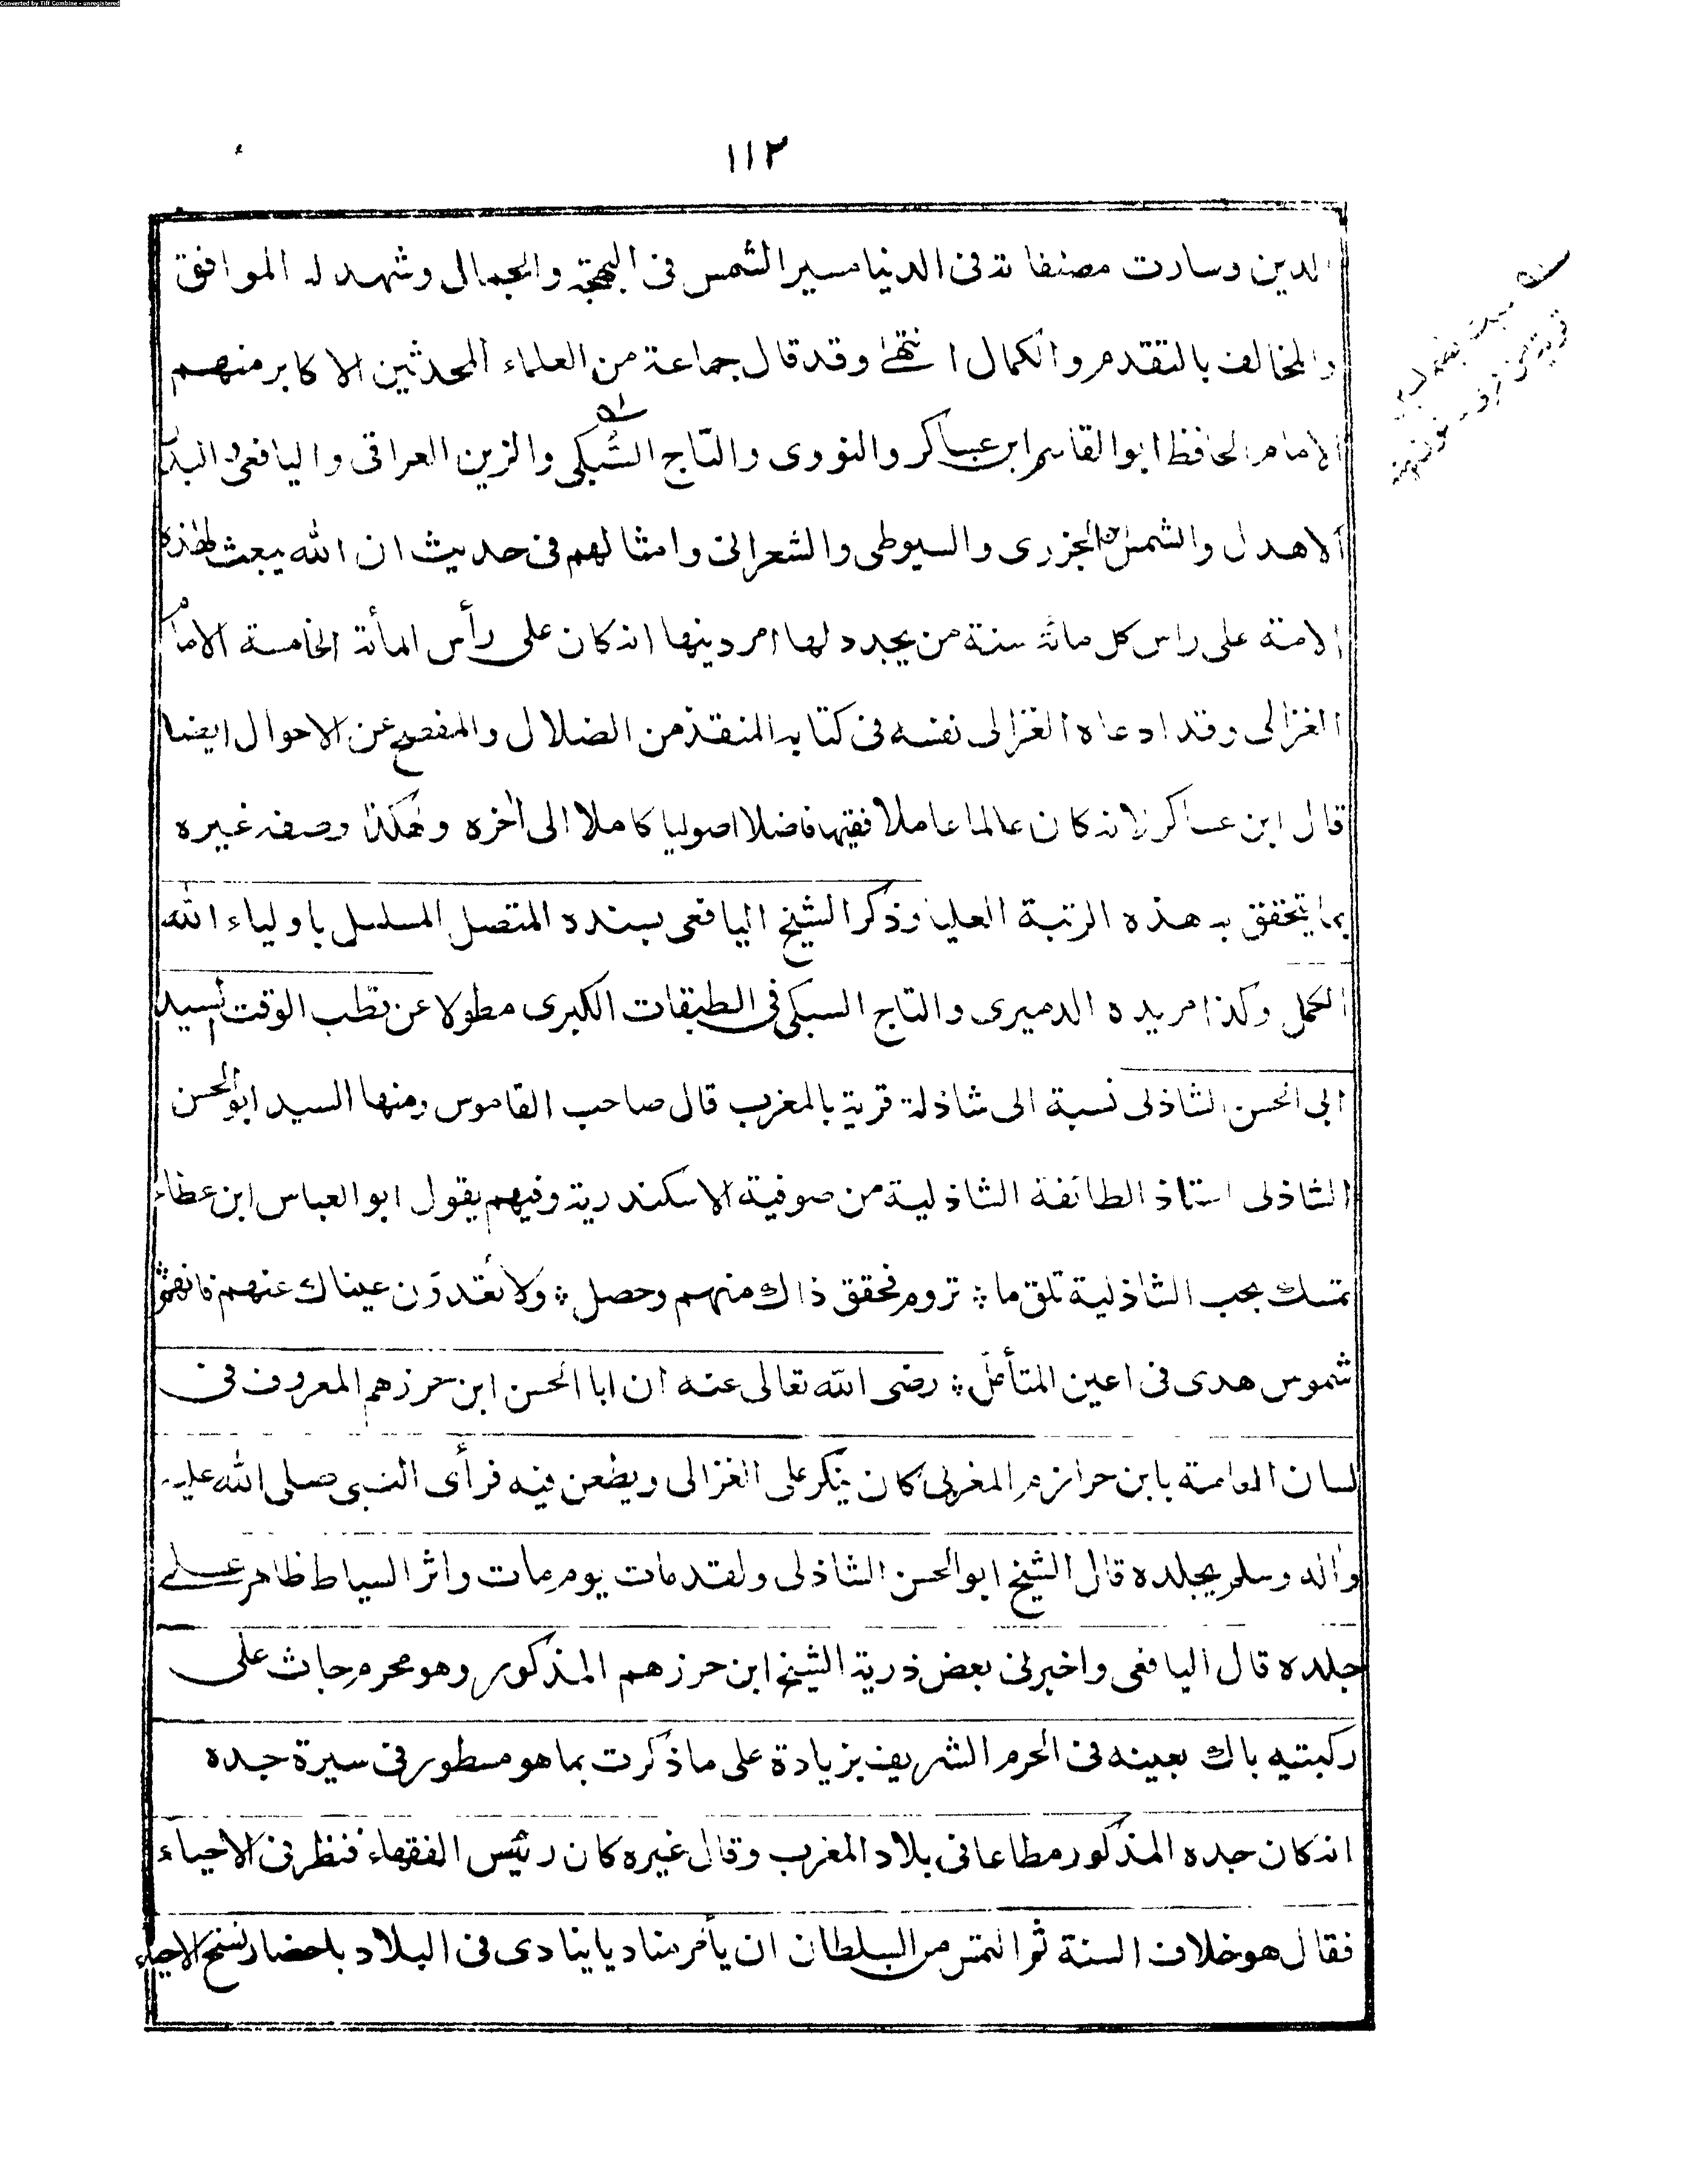 Converted by Tiff Combine - unregistered
١١٢
الدين وسارت مصنفاته فى الدنيا مسير الشمس فى البهجة والجمال وشهد له الموافق
والمخالف بالتقدم والكمال انتهى وقد قال جماعة من العلماء المحدثين الاكابر منهم
الامام الحافظ ابو القاسم ابن عساكر والنووى والتاج السُبكى والزين العراقى واليافعى والبدر
الاهدل والشمس الجزرى والسيوطى والشعرانى وامثالهم فى حديث ان الله يبعث لهذه
الامة على راس كل مائة سنة من يجدد لها امر دينها انه كان على رأس المأته الخامسة الامام
الغزالى وقد ادعاه الغزالى نفسه فى كتابه المنقذ من الضلال والمفصح عن الاحوال ايضا
قال ابن عساكر لانه كان عالما عاملا فقيها فاضلا اصوليا كاملا الى أخره وهكذا وصفه غيره
بما يتحقق به هذه الرتبة العليا وذكر الشيخ اليافعى بسنده المتصل المسلسل باولياء الله
الكمل وكذا مريده الدميرى والتاج السبكى فى الطبقات الكبرى مطولا عن قطب الوقت السيد
ابى الحسن الشاذلى نسبة الى شاذلة قرية بالمغرب قال صاحب القاموس ومنها السيد ابو الحسن
الشاذلى استاذ الطائفة الشاذلية من صوفية الاسكندرية وفيهم يقول ابو العباس ابن عطاء
تمسك بحب الشاذلية تلق ما ؞ تروم فحقق ذاك منهم وحصل ؞ ولا تَعْدوَن عيناك عنهم فانهموا
شموس هدى فى اعين المتأمل ؞ رضى الله تعالى عنه ان ابا الحسن ابن حرزهم المعروف فى
لسان العامة بابن حرازم المغربى كان ينكر على الغزالى ويطعن فيه فرأى النبى صلى الله عليه
واله وسلم يجلده قال الشيخ ابو الحسن الشاذلى ولقد مات يوم مات واثر السياط ظاهر على
جلده قال اليافعى واخبرنى بعض ذرية الشيخ ابن حرزهم المذكور وهو محرم جاث على
ركبتيه باك بعينه فى الحرم الشريف بزيادة على ما ذكرت بما هو مسطور فى سيرة جده
انه كان جده المذكور مطاعا فى بلاد المغرب وقال غيره كان رئيس الفقهاء فنظر فى الاحياء
فقال هو خلاف السنة ثم التمس من السلطان ان يأمر مناديا ينادى فى البلاد باحضار نسخ الاحياء